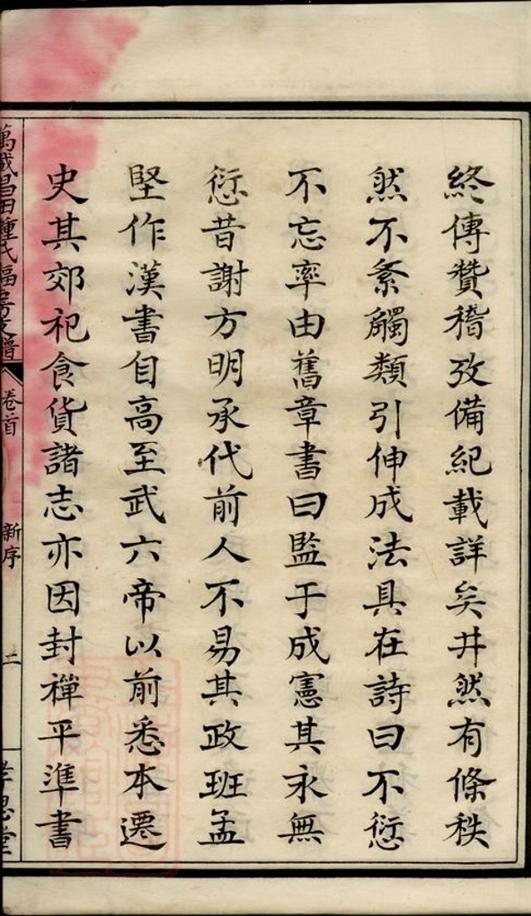 終傳贊稽攷備紀載詳矣井然有條秩
然不紊觸類引伸成法具在詩曰不愆
不忘率由舊章書曰監于成憲其永無
愆昔謝方明承代前人不易其政班孟
堅作漢書自高至武六帝以前悉本遷
史其郊祀食貨諸志亦因封禪平準書
萬載昌田鍾氏福房支譜 卷首 新序 二 孝思堂